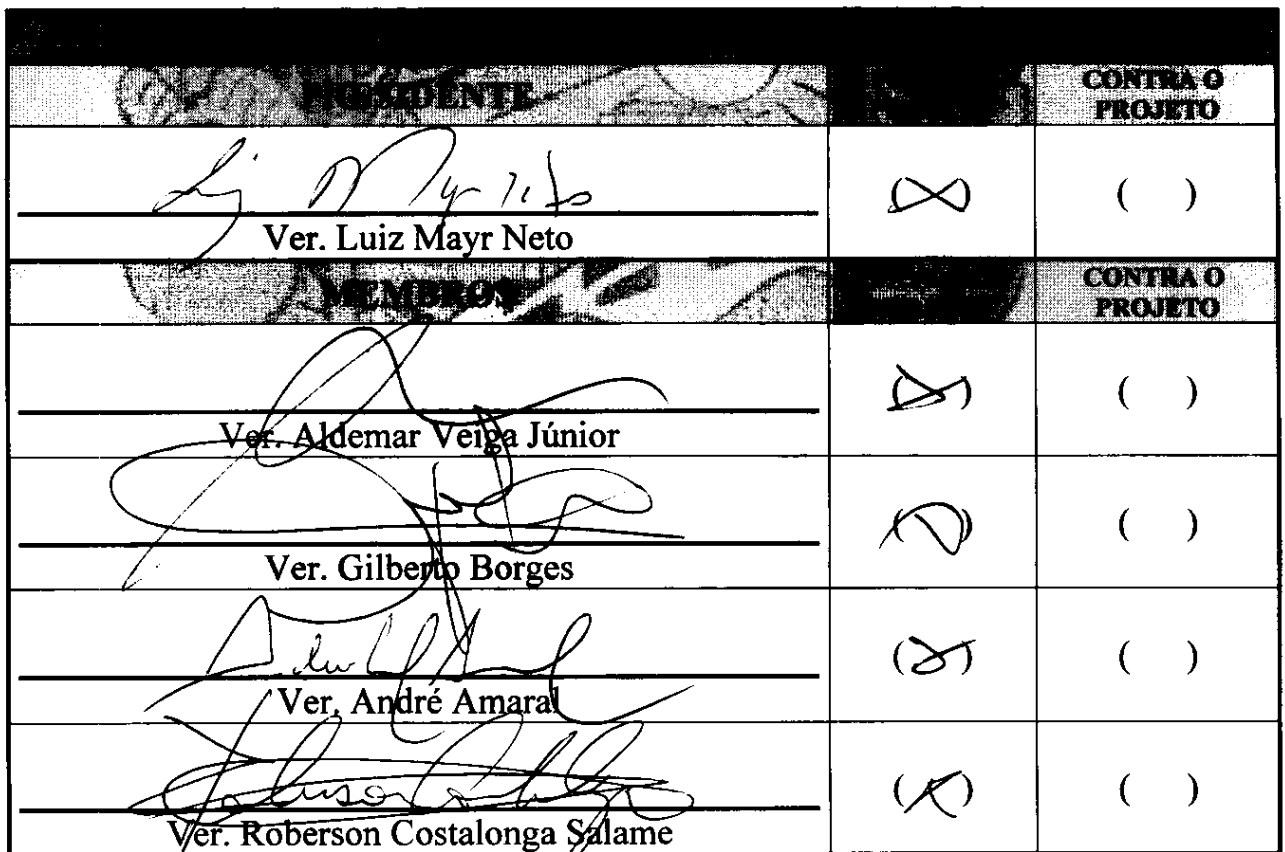 PRESIDENTE
CONTRA O
PROJETO
( )
Ver. Luiz Mayr Neto
MEMBROS
CONTRA O
PROJETO
( )
Ver. Aldemar Veiga Júnior
( )
Ver. Gilberto Borges
( )
Ver. André Amaral
( )
Ver. Roberson Costalonga Salame